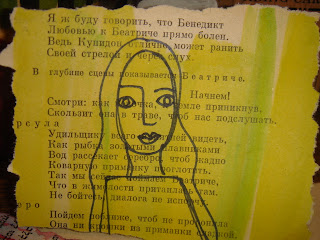 Я ж буду говорить, что Бенедикт
Любовью к Беатриче прямо болен.
Ведь Купидон отлично может ранить
Своей стрелой и через слух.
В глубине сцены показывается Беатриче.
Начнем!
Смотри: как
земле приникнув,
Скользит она в траве, чтоб нас подслушать.
рсула
Удильщику всего видеть,
Как рыбка золотыми плавниками
Вод рассекает серебро, чтоб жадно
Коварную приманку проглотить.
Так мы Беатриче,
Что в жимолости притаилась там.
Не бойтесь, диалога не испорчу.
еро
Пойдем поближе, чтоб не проронила
Она ни крошки из приманки сладкой.